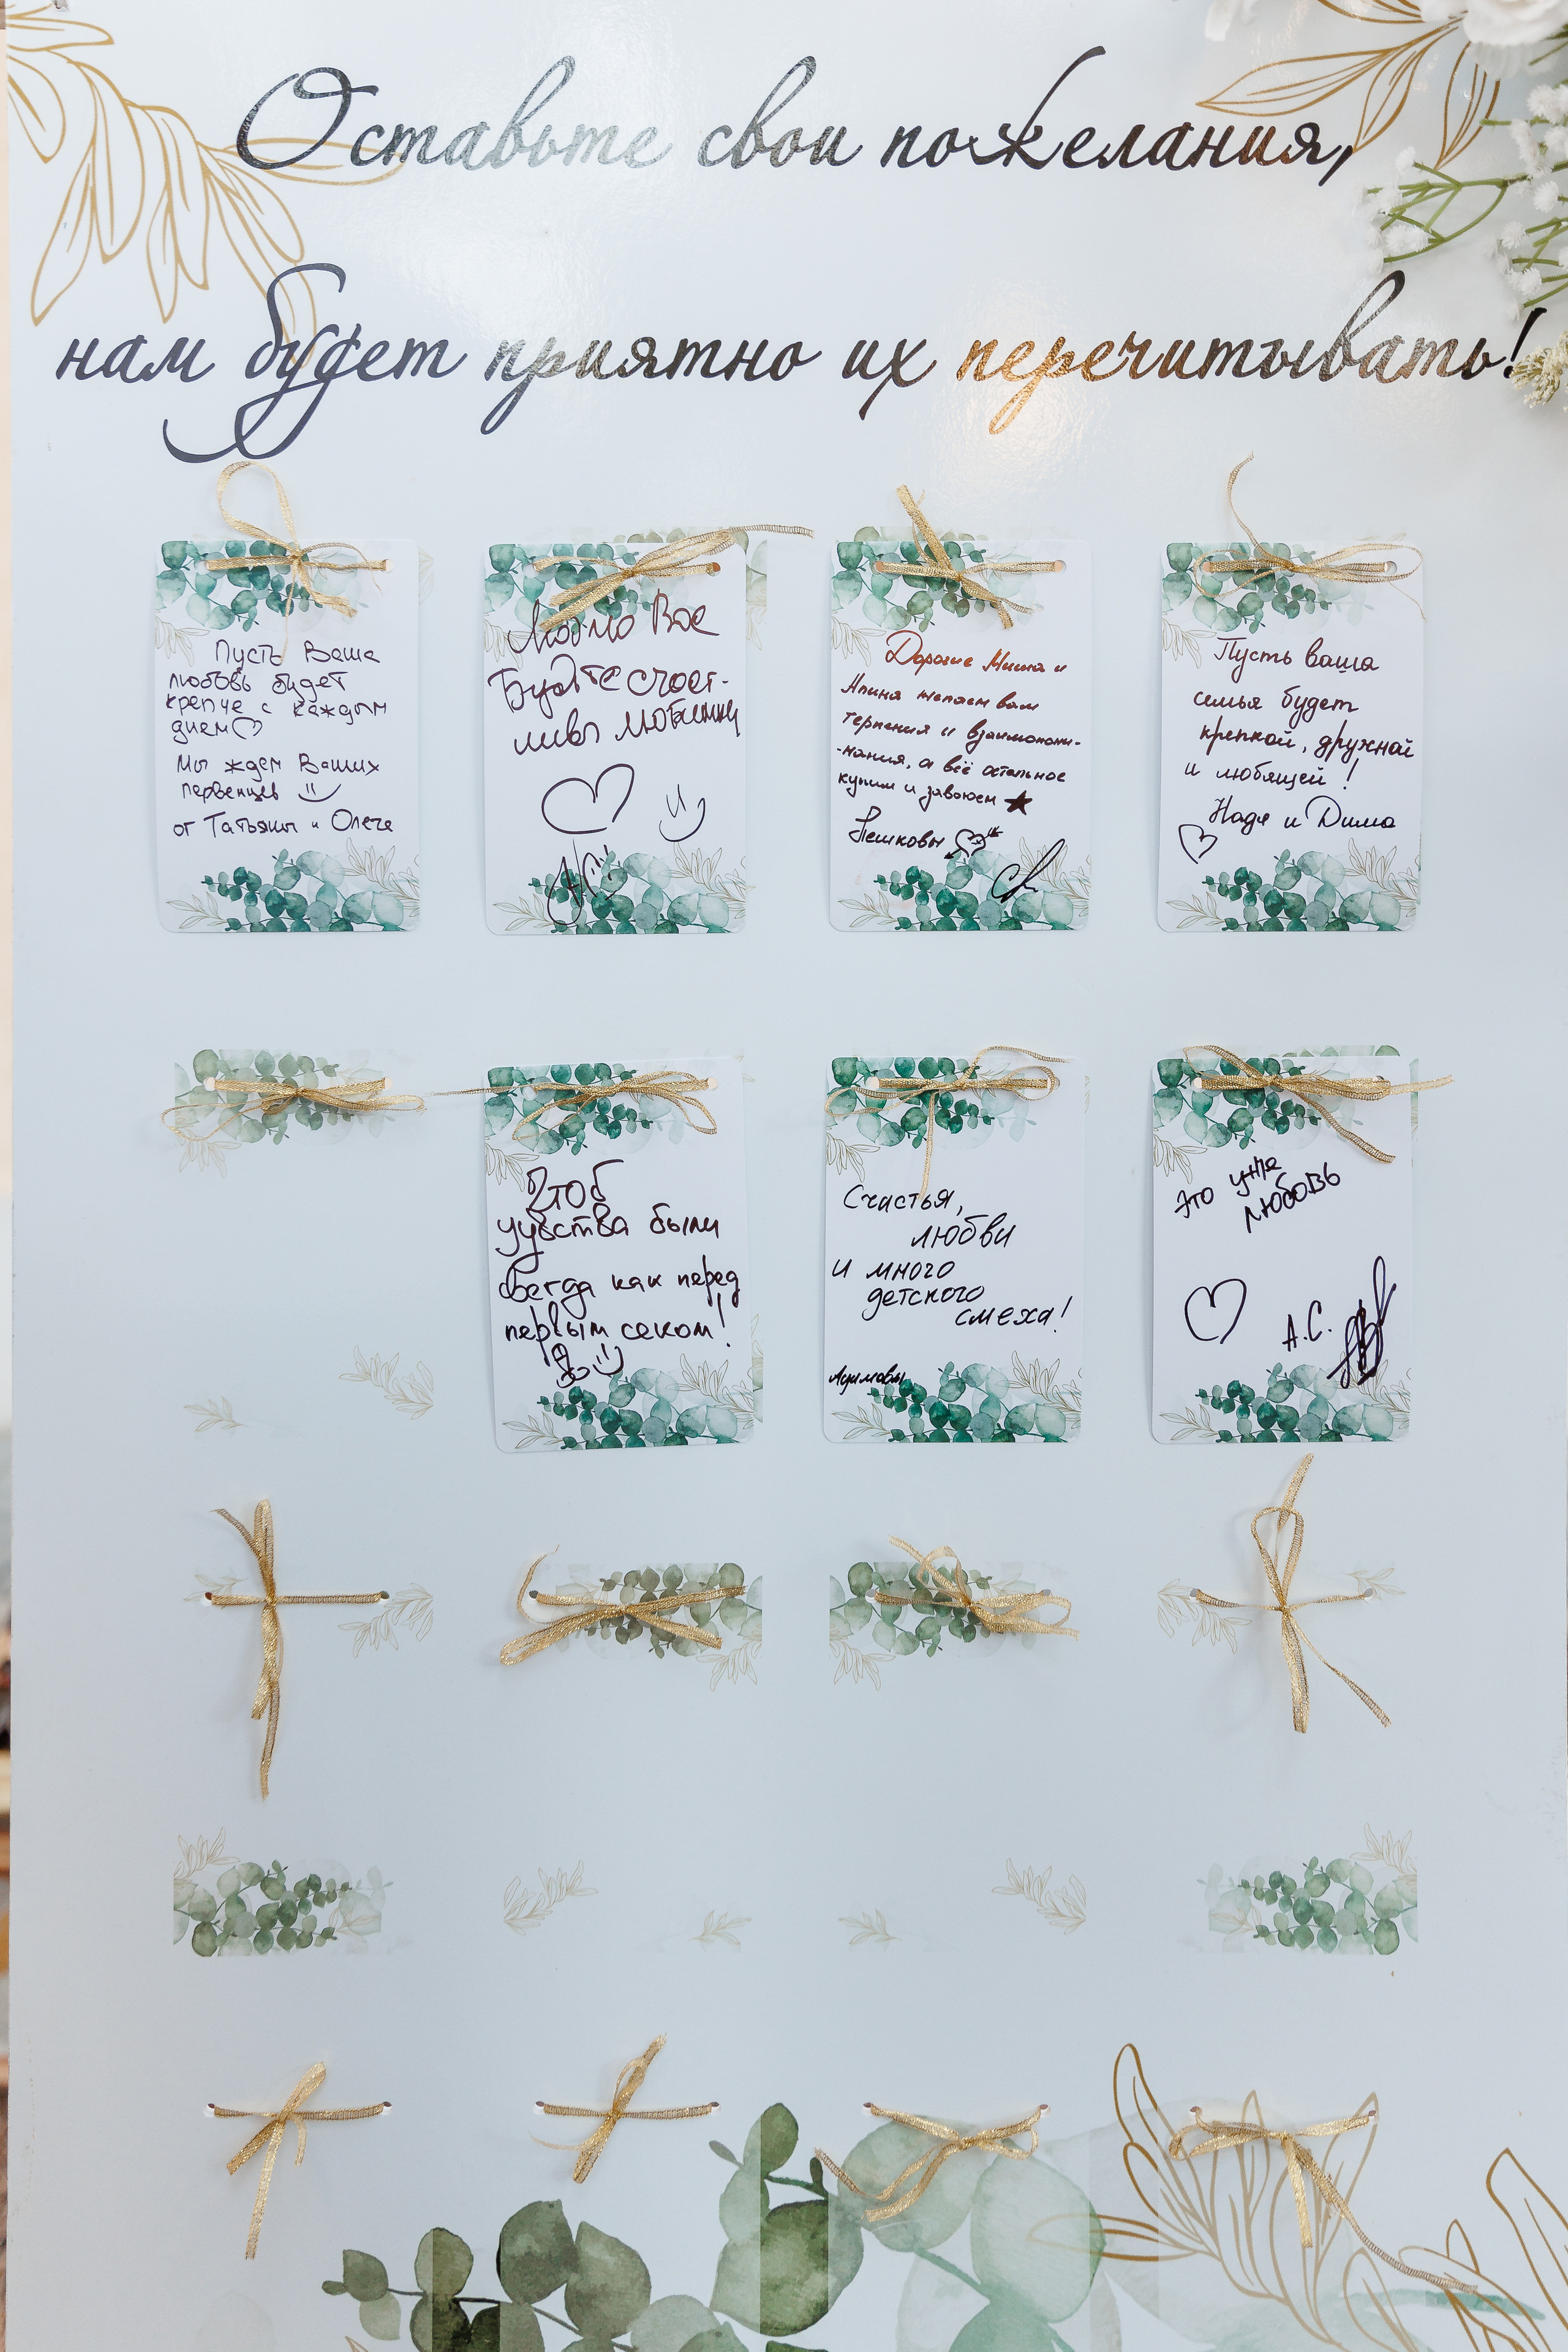 Оставьте свои пожелания,
нам будет приятно их перечитывать!
Пусть Ваша
любовь будет
крепче с каждым
днем
Мы ждем Ваших
первенцев
от Татьяны и Олега
Люблю Вас
Будте счаст-
ливы любимки
Дорогие Миша и
Алина желаем вам
терпения и взаимопони-
-мания, а всё остальное
купим и завоюем
Пешковы
Пусть ваша
семья будет
крепкой, дружной
и любящей!
Надя и Дима
Чтоб
чувства были
всегда как перед
первым секом!
Счастья,
любви
и много
детского
смеха!
Это уже
любовь
А.С.